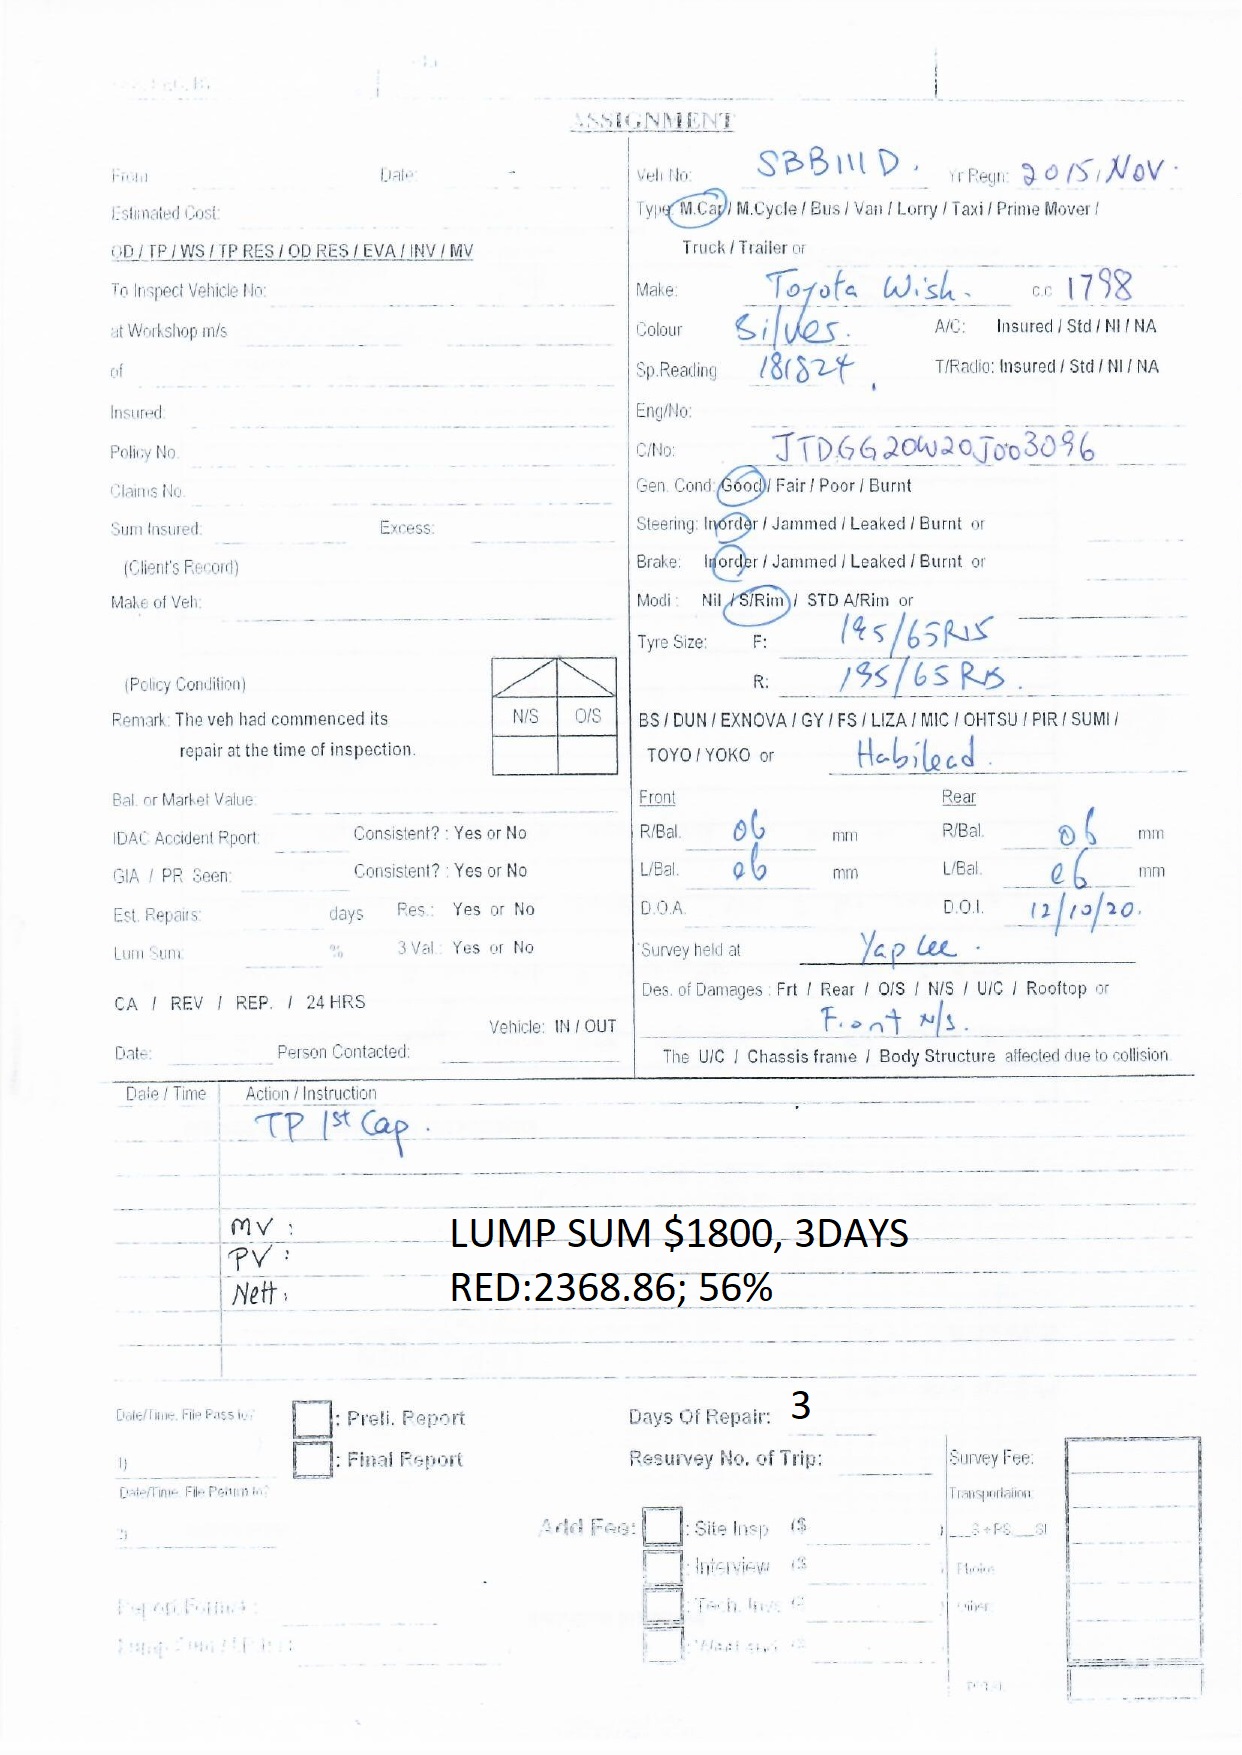 ASSIGNMENT
From Date: -
Estimated Cost:
OD / TP / WS / TP RES / OD RES / EVA / INV / MV
To Inspect Vehicle No:
at Workshop m/s
of
Insured:
Policy No.
Claims No.
Sum Insured: Excess:
(Client's Record)
Make of Veh:
(Policy Condition)
Remark: The veh had commenced its
repair at the time of inspection.
N/S O/S
Bal. or Market Value:
IDAC Accident Rport: Consistent? : Yes or No
GIA / PR Seen: Consistent? : Yes or No
Est. Repairs: days Res.: Yes or No
Lum Sum: % 3 Val.: Yes or No
CA / REV / REP. / 24 HRS
Vehicle: IN / OUT
Date: Person Contacted:
Veh No: SBB111D. Yr Regn: 2015, NOV.
Type: M.Car / M.Cycle / Bus / Van / Lorry / Taxi / Prime Mover /
Truck / Trailer or
Make: Toyota Wish. c.c 1798
Colour Silver. A/C: Insured / Std / NI / NA
Sp.Reading 181824 T/Radio: Insured / Std / NI / NA
Eng/No:
C/No: JTDGG20W20J003096
Gen. Cond: Good / Fair / Poor / Burnt
Steering: Inorder / Jammed / Leaked / Burnt or
Brake: Inorder / Jammed / Leaked / Burnt or
Modi : Nil / S/Rim / STD A/Rim or
Tyre Size: F: 195/65R15
R: 195/65R15.
BS / DUN / EXNOVA / GY / FS / LIZA / MIC / OHTSU / PIR / SUMI /
TOYO / YOKO or Habilead.
Front Rear
R/Bal. 06 mm R/Bal. 06 mm
L/Bal. 06 mm L/Bal. 06 mm
D.O.A. D.O.I. 12/10/20.
Survey held at Yap Lee.
Des. of Damages : Frt / Rear / O/S / N/S / U/C / Rooftop or
Front N/S.
The U/C / Chassis frame / Body Structure affected due to collision
Date / Time Action / Instruction
TP 1st Cap.
MV : LUMP SUM $1800, 3DAYS
PV :
Nett: RED:2368.86; 56%
Date/Time, File Pass to: : Preli. Report Days Of Repair: 3
1) : Final Report Resurvey No. of Trip: Survey Fee:
Date/Time File Return to: Transportation:
Add Fee: : Site Insp ($
: Interview ($